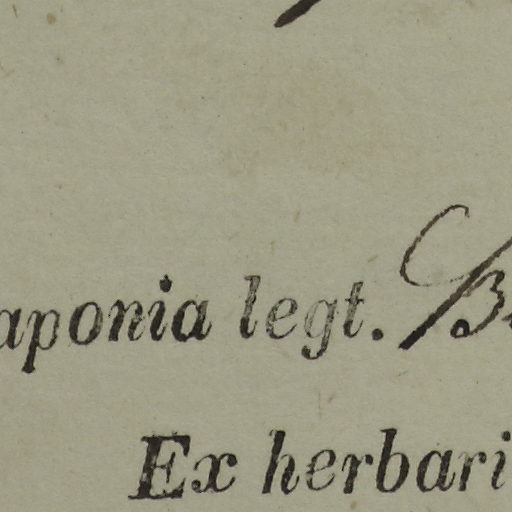 aponia legt. B
Ex herbari